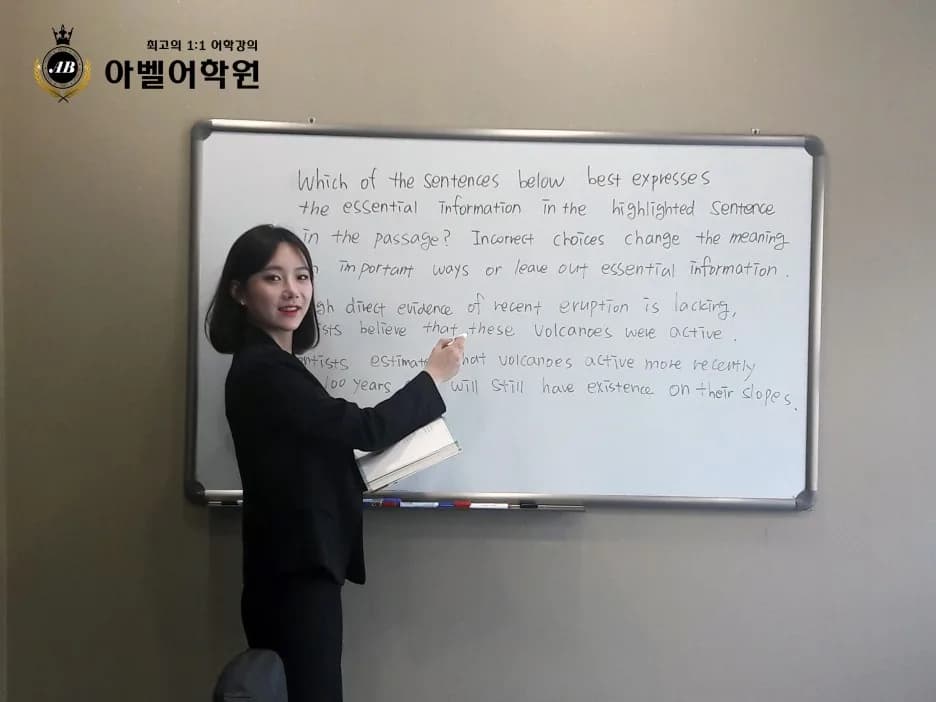 최고의 1:1 어학강의
AB
아벨어학원
Which of the sentences below best expresses
the essential information in the highlighted sentence
in the passage? Incorrect choices change the meaning
important ways or leave out essential information.
direct evidence of recent eruption is lacking,
believe that these volcanoes were active.
volcanoes active more recently
100 years will still have existence on their slopes.